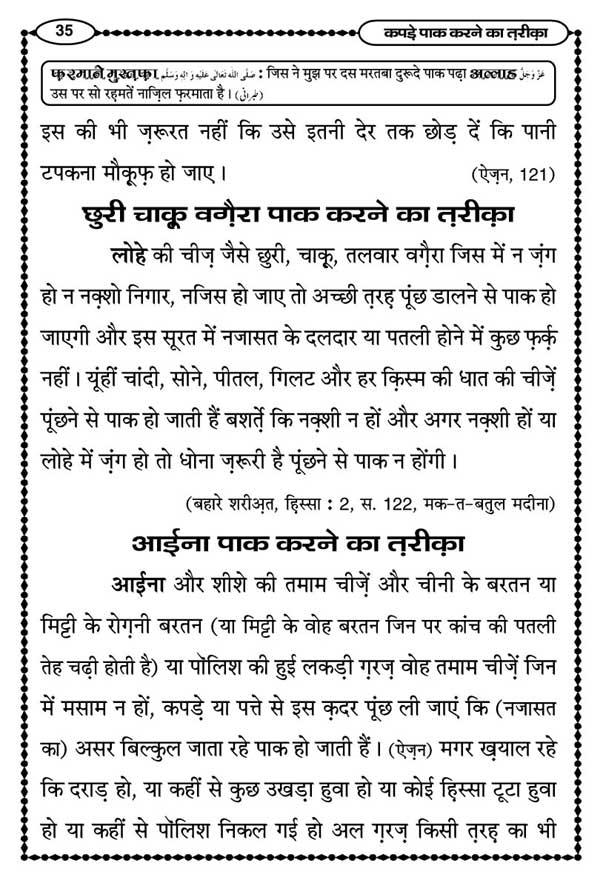 35
कपड़े पाक करने का त़रीक़ा
फ़रमाने मुस्त़फ़ा صَلَّی اللہُ تَعَالٰی عَلَیْہِ وَاٰلِہٖ وَسَلَّم : जिस ने मुझ पर दस मरतबा दुरूदे पाक पढ़ा अल्लाह عَزَّوَجَلَّ
उस पर सो रह़मतें नाज़िल फ़रमाता है । (طبرانی)
इस की भी ज़रूरत नहीं कि उसे इतनी देर तक छोड़ दें कि पानी
टपकना मौक़ूफ़ हो जाए । (ऐज़न, 121)
छुरी चाक़ू वग़ैरा पाक करने का त़रीक़ा
लोहे की चीज़ जैसे छुरी, चाक़ू, तलवार वग़ैरा जिस में न ज़ंग
हो न नक़्शो निगार, नजिस हो जाए तो अच्छी त़रह़ पूंछ डालने से पाक हो
जाएगी और इस सूरत में नजासत के दलदार या पतली होने में कुछ फ़र्क़
नहीं । यूंहीं चांदी, सोने, पीतल, गिलट और हर क़िस्म की धात की चीज़ें
पूंछने से पाक हो जाती हैं बशर्ते़ कि नक़्शी न हों और अगर नक़्शी हों या
लोहे में ज़ंग हो तो धोना ज़रूरी है पूंछने से पाक न होंगी ।
(बहारे शरीअ़त, ह़िस्सा : 2, स. 122, मक-त-बतुल मदीना)
आईना पाक करने का त़रीक़ा
आईना और शीशे की तमाम चीज़ें और चीनी के बरतन या
मिट्टी के रोग़नी बरतन (या मिट्टी के वोह बरतन जिन पर कांच की पतली
तेह चढ़ी होती है) या पॉलिश की हुई लकड़ी ग़रज़ वोह तमाम चीज़ें जिन
में मसाम न हों, कपड़े या पत्ते से इस क़दर पूंछ ली जाएं कि (नजासत
का) असर बिल्कुल जाता रहे पाक हो जाती हैं । (ऐज़न) मगर ख़याल रहे
कि दराड़ हो, या कहीं से कुछ उखड़ा हुवा हो या कोई ह़िस्सा टूटा हुवा
हो या कहीं से पॉलिश निकल गई हो अल ग़रज़ किसी त़रह़ का भी